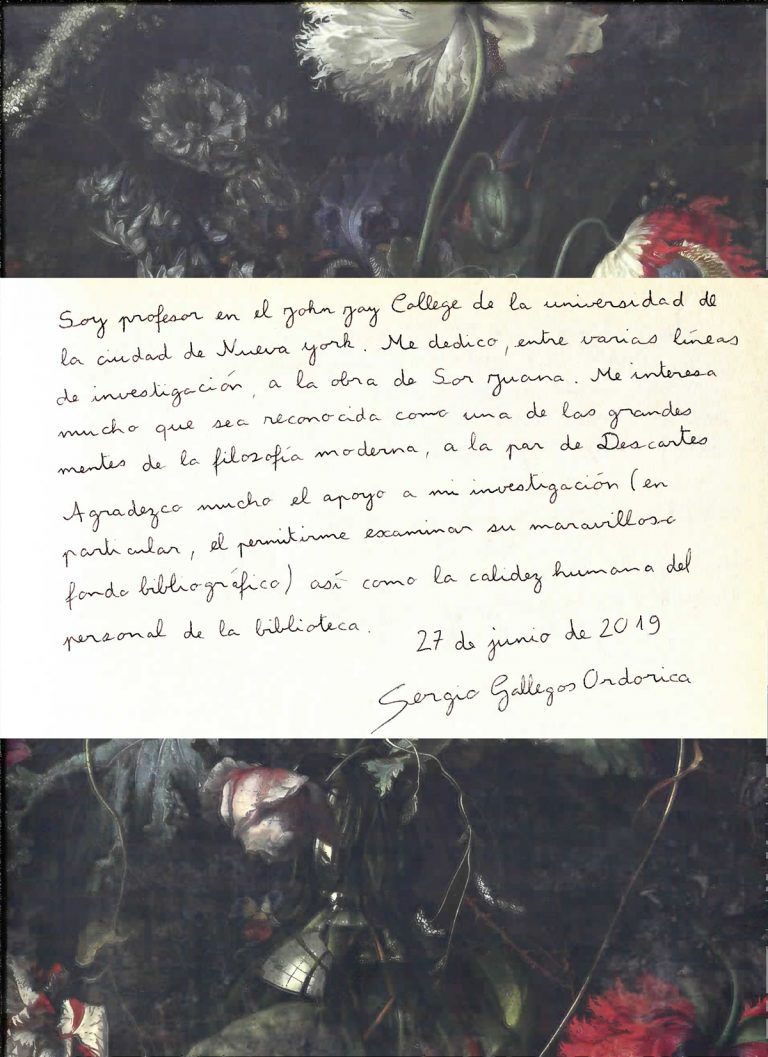 Soy profesor en el John Jay College de la universidad de
la ciudad de Nueva york. Me dedico, entre varias líneas
de investigación, a la obra de Sor Juana. Me interesa
mucho que sea reconocida como una de las grandes
mentes de la filosofía moderna, a la par de Descartes
Agradezco mucho el apoyo a mi investigación (en
particular, el permitirme examinar su maravilloso
fondo bibliográfico) así como la calidez humana del
personal de la biblioteca.
27 de junio de 2019
Sergio Gallegos Ordorica